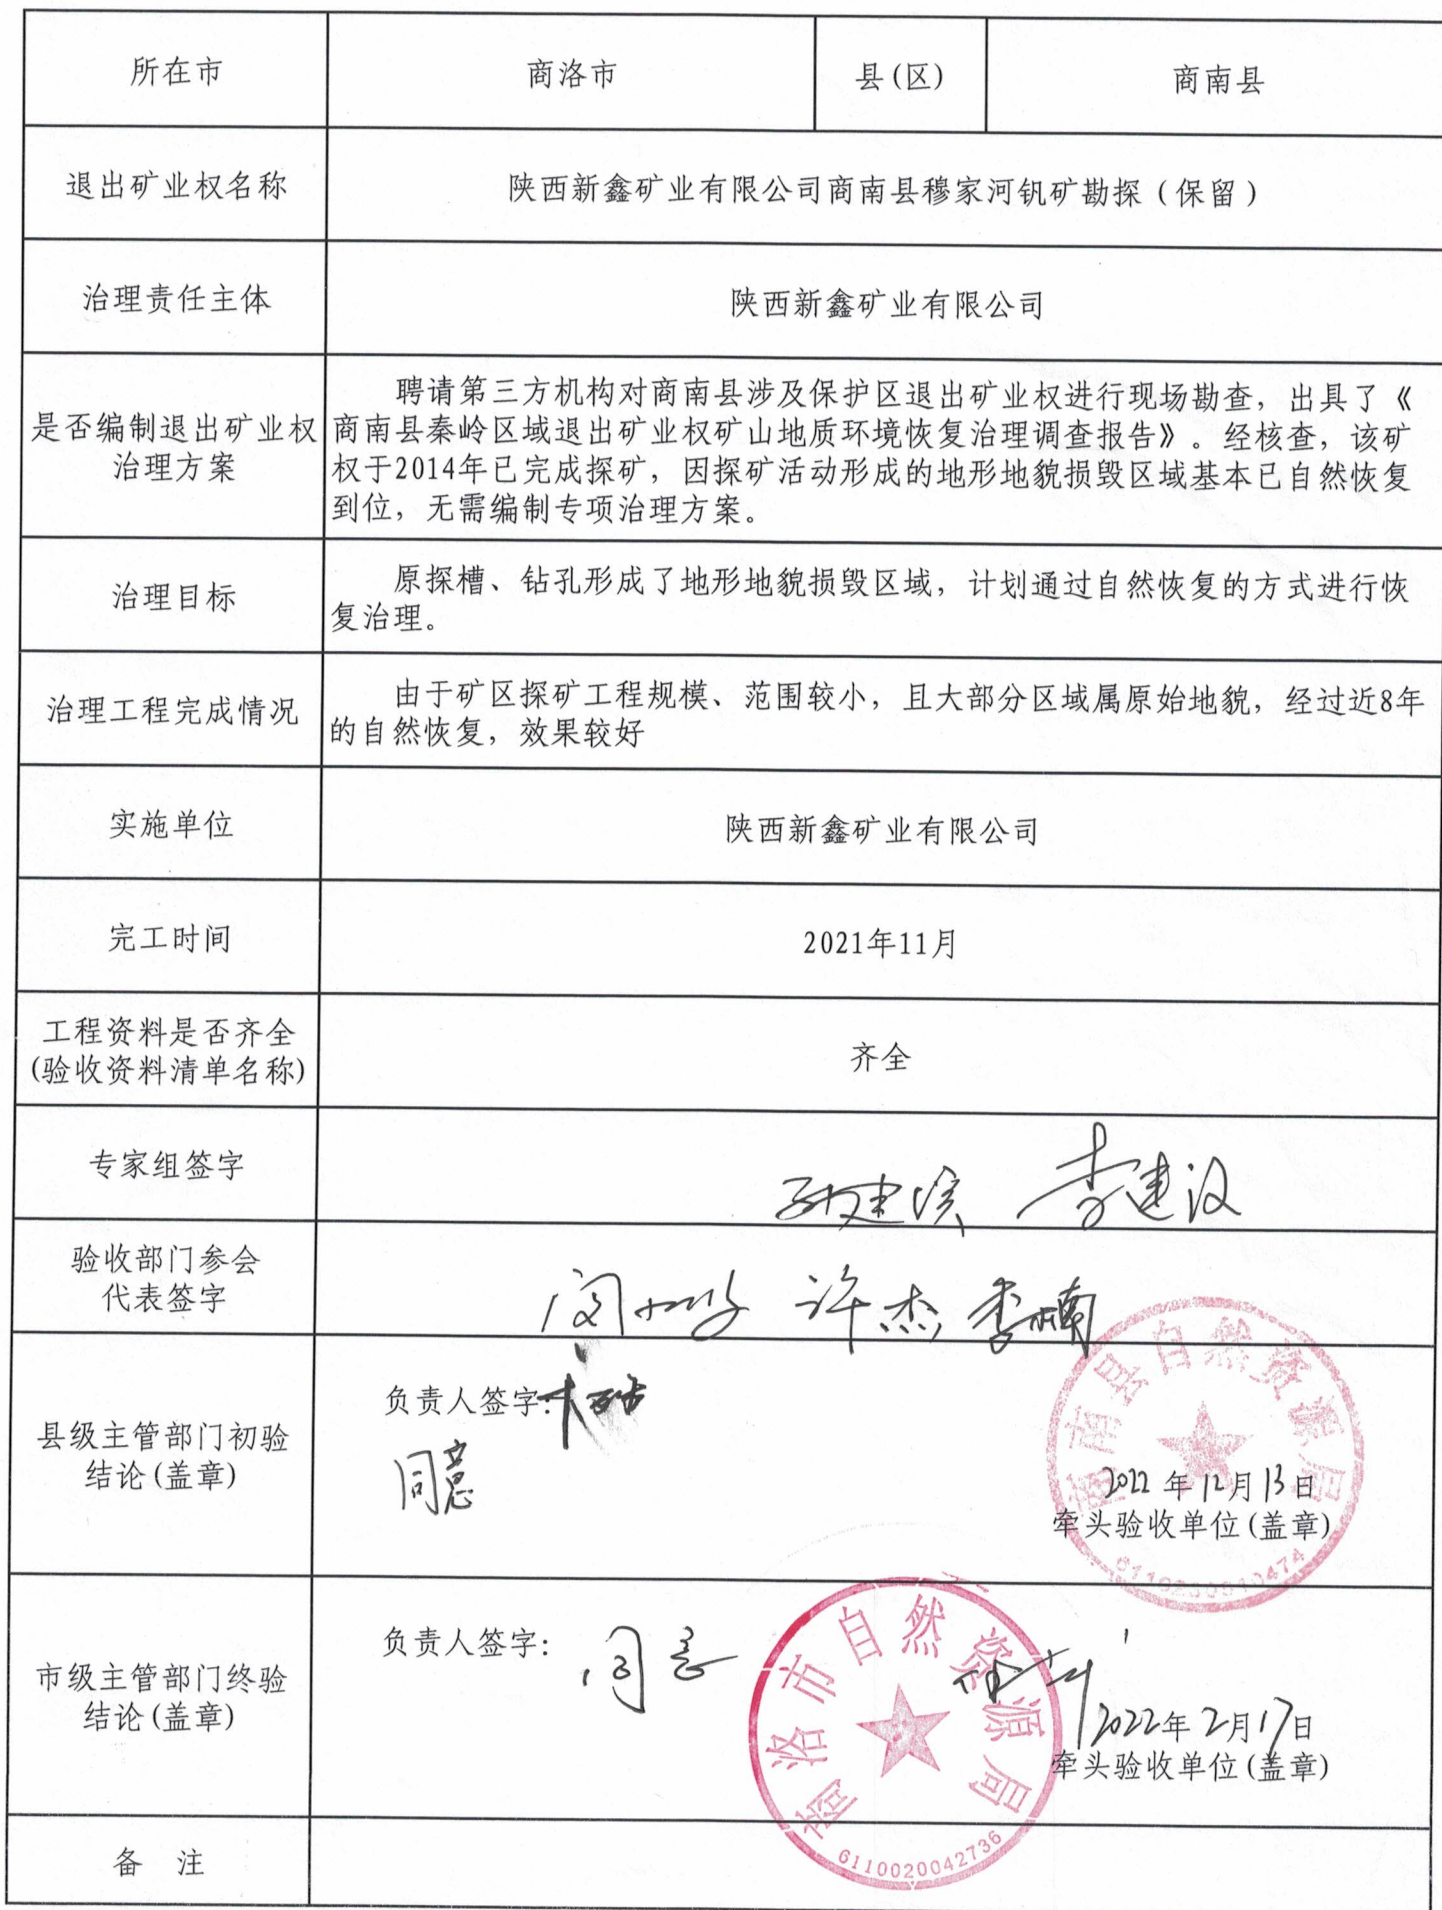 所在市 商洛市 县(区) 商南县
退出矿业权名称 陕西新鑫矿业有限公司商南县穆家河钒矿勘探（保留）
治理责任主体 陕西新鑫矿业有限公司
是否编制退出矿业权
治理方案
聘请第三方机构对商南县涉及保护区退出矿业权进行现场勘查，出具了《
商南县秦岭区域退出矿业权矿山地质环境恢复治理调查报告》。经核查，该矿
权于2014年已完成探矿，因探矿活动形成的地形地貌损毁区域基本已自然恢复
到位，无需编制专项治理方案。
治理目标
原探槽、钻孔形成了地形地貌损毁区域，计划通过自然恢复的方式进行恢
复治理。
治理工程完成情况
由于矿区探矿工程规模、范围较小，且大部分区域属原始地貌，经过近8年
的自然恢复，效果较好
实施单位 陕西新鑫矿业有限公司
完工时间 2021年11月
工程资料是否齐全
(验收资料清单名称)
齐全
专家组签字
李建汉
验收部门参会
代表签字
许杰 李楠
县级主管部门初验
结论(盖章)
负责人签字:
同意
商南县自然资源局
2022年12月13日
牵头验收单位(盖章)
市级主管部门终验
结论(盖章)
负责人签字: 同意
商洛市自然资源局
6110020042736
2022年2月17日
牵头验收单位(盖章)
备 注